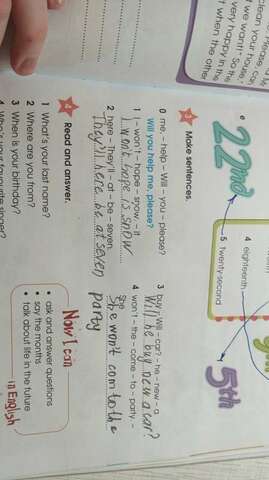 Please
clean your house
we want!" So the
very happy in the
t when the other
e
22nd
4 eighteenth
5 twenty-second
5th
3 Make sentences.
0 me. – help – Will – you – please?
Will you help me, please?
1 I – won't – hope – snow. – it
I won't hope is snow
2 here – They'll – at – be – seven.
They'll here be at seven
3 buy – Will – car? – he – new – a
Will he buy new a car?
4 won't – the – come – to – party. –
She
She won't com to the
party
4 Read and answer.
1 What's your last name?
2 Where are you from?
3 When is your birthday?
4 Who's your favourite singer?
Now I can
• ask and answer questions
• say the months
• talk about life in the future
in English